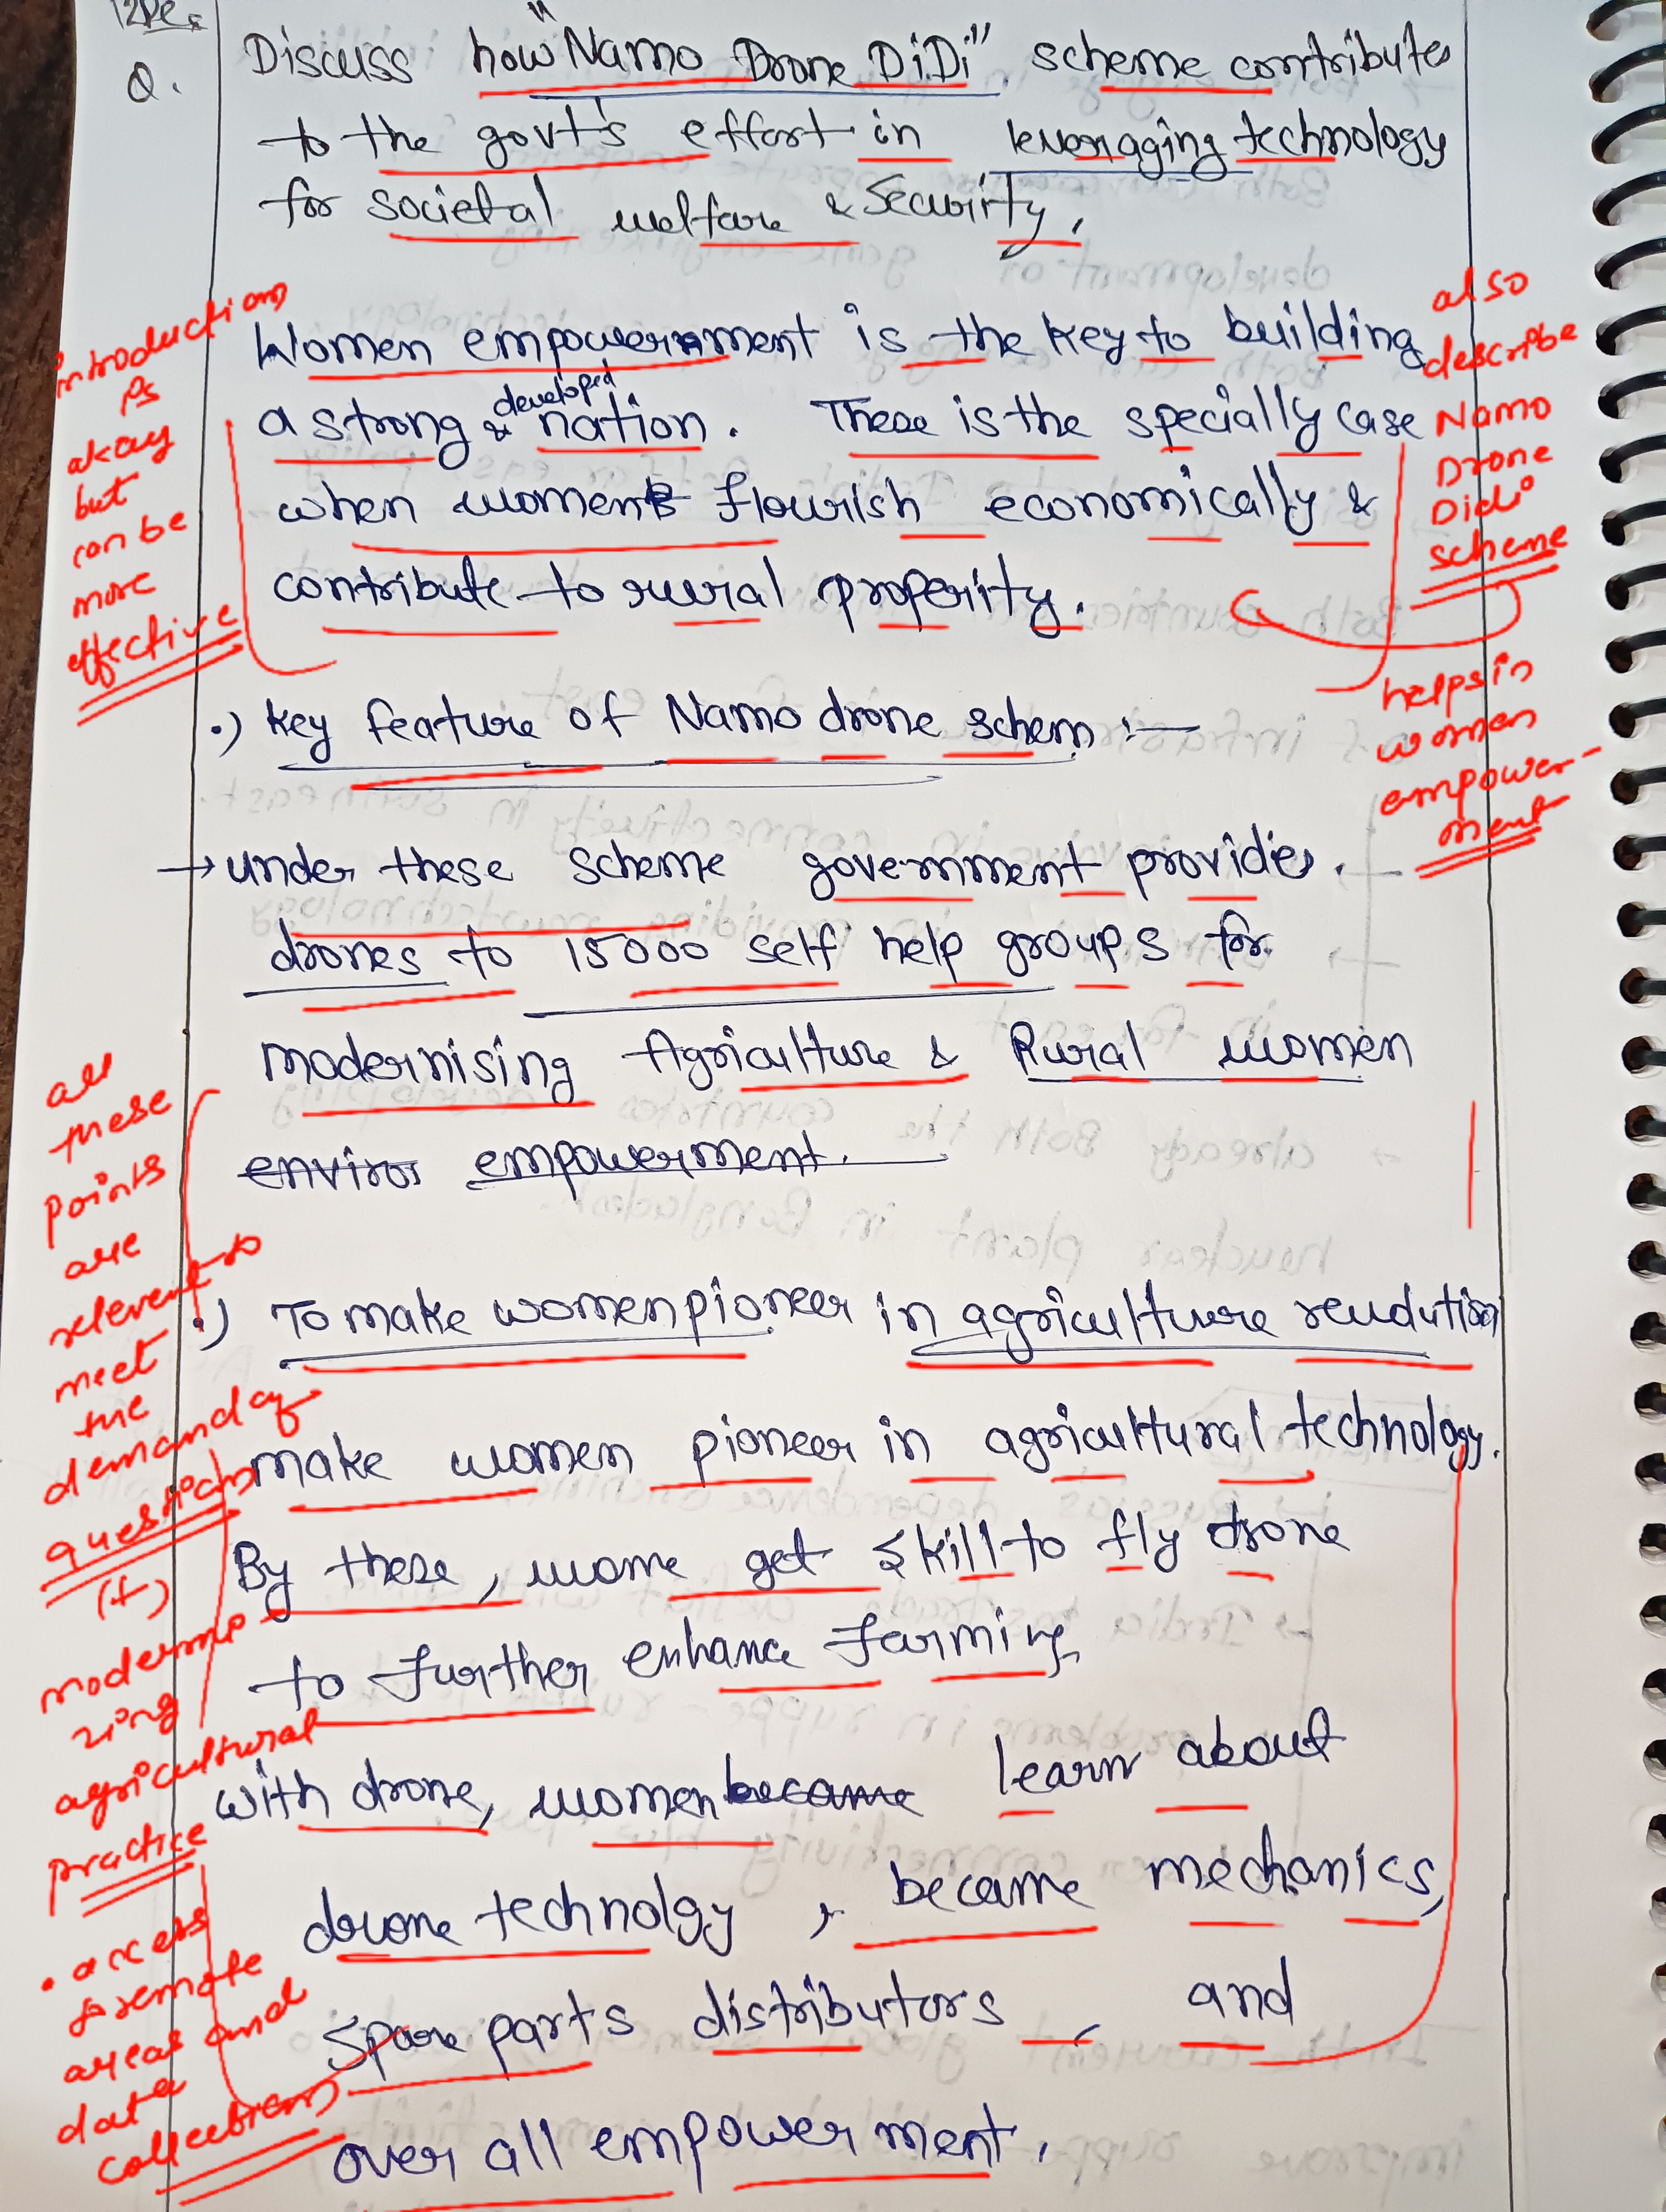 12Dec
Q. Discuss how "Namo Drone DiDi" scheme contributes
to the govt's effort in leveragging technology
for societal welfare & Secuirty.
Women empowernment is the key to building
a strong & developed nation. These is the specially case
when women flourish economically &
contribute to rural properity.
introduction
is
okay
but
can be
more
effective
also
describe
Namo
Drone
Didi
scheme
helps in
women
empower-
ment
.) Key feature of Namo drone schem :-
→ under these scheme government provides.
drones to 15000 self help groups for
modernising Agriculture & Rural women
environ empowerment.
.) To make women pioneer in agriculture revolution
make women pioneer in agricultural technology.
By these, wome get skill to fly drone
to further enhance farming
with drone, women became learn about
drone technolgy, became mechanics,
spare parts distributors, and
over all empowerment.
all
these
points
are
relevent to
meet
the
demand of
question
(+)
moderni
zing
agricultural
practice
. access
to remote
areas and
data
collection